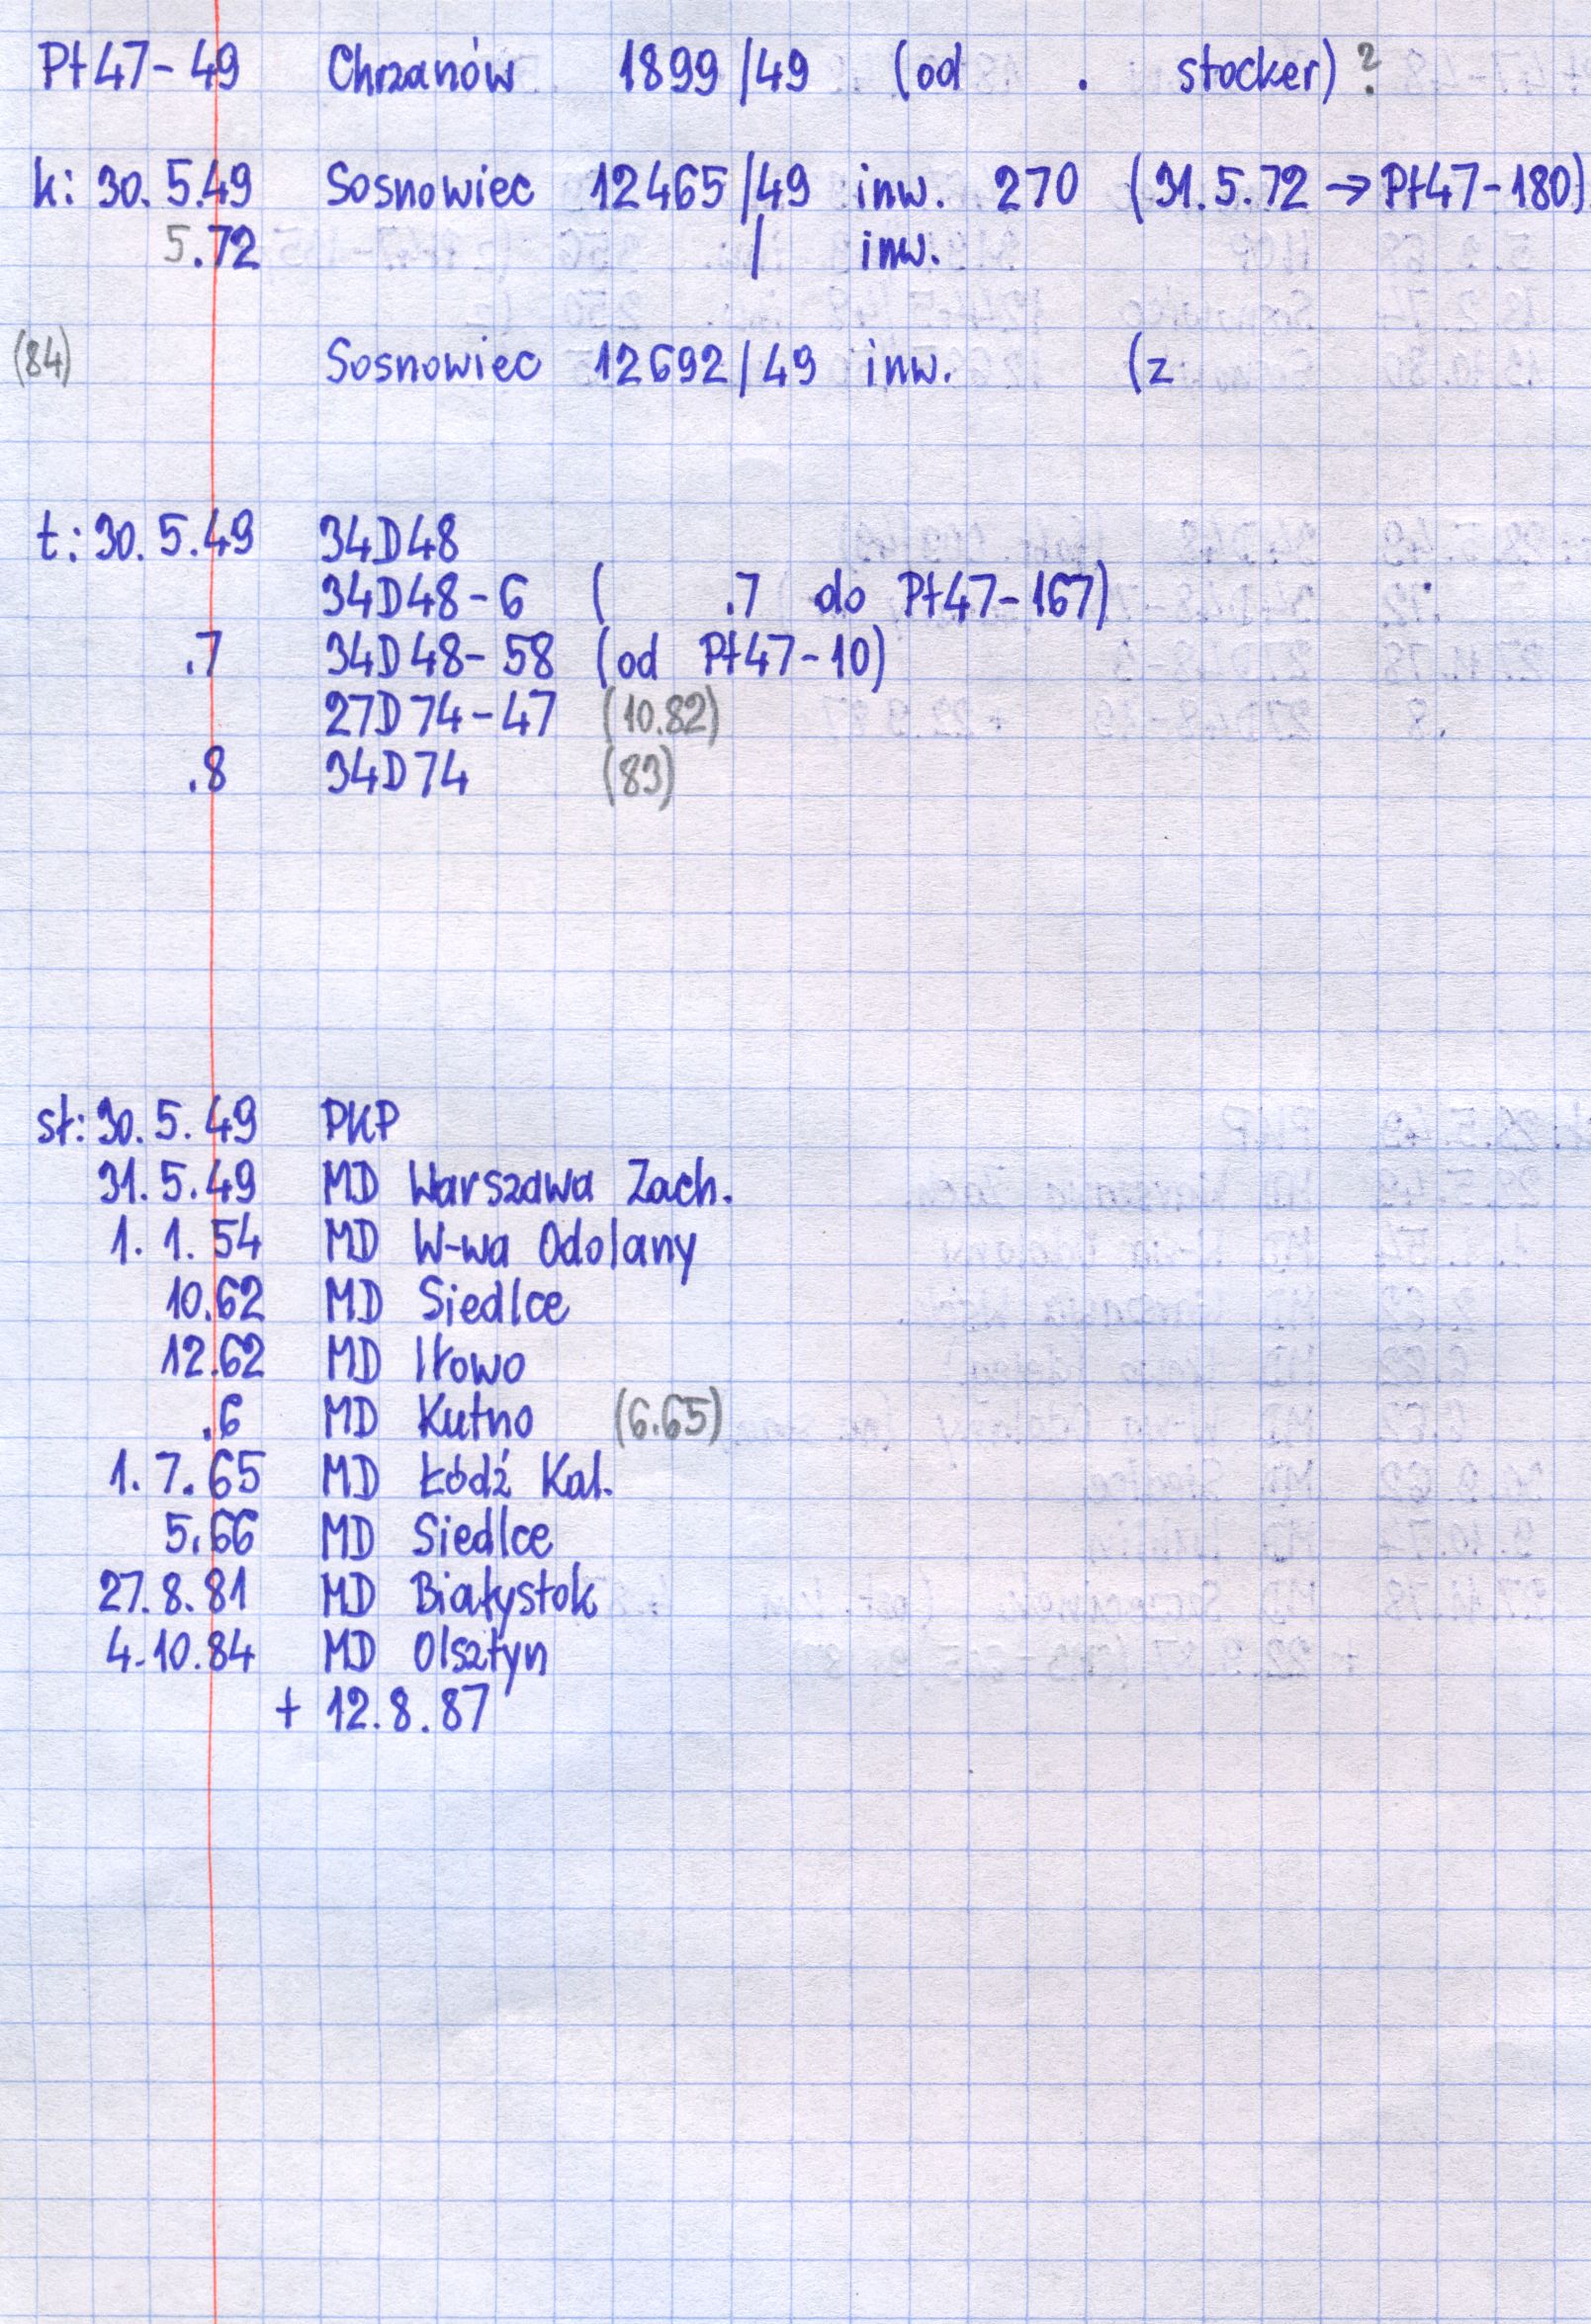 Pt47-49 Chrzanów 1899/49 (od . stocker) ?
k: 30.5.49 Sosnowiec 12465/49 inw. 270 (31.5.72 → Pt47-180)
5.72 / inw.
(84) Sosnowiec 12692/49 inw. (z
t: 30.5.49 34D48
34D48-6 ( .7 do Pt47-167)
.7 34D48-58 (od Pt47-10)
27D74-47 (10.82)
.8 34D74 (83)
sł: 30.5.49 PKP
31.5.49 MD Warszawa Zach.
1.1.54 MD W-wa Odolany
10.62 MD Siedlce
12.62 MD Iłowo
.6 MD Kutno (6.65)
1.7.65 MD Łódź Kal.
5.66 MD Siedlce
27.8.81 MD Białystok
4.10.84 MD Olsztyn
+ 12.8.87